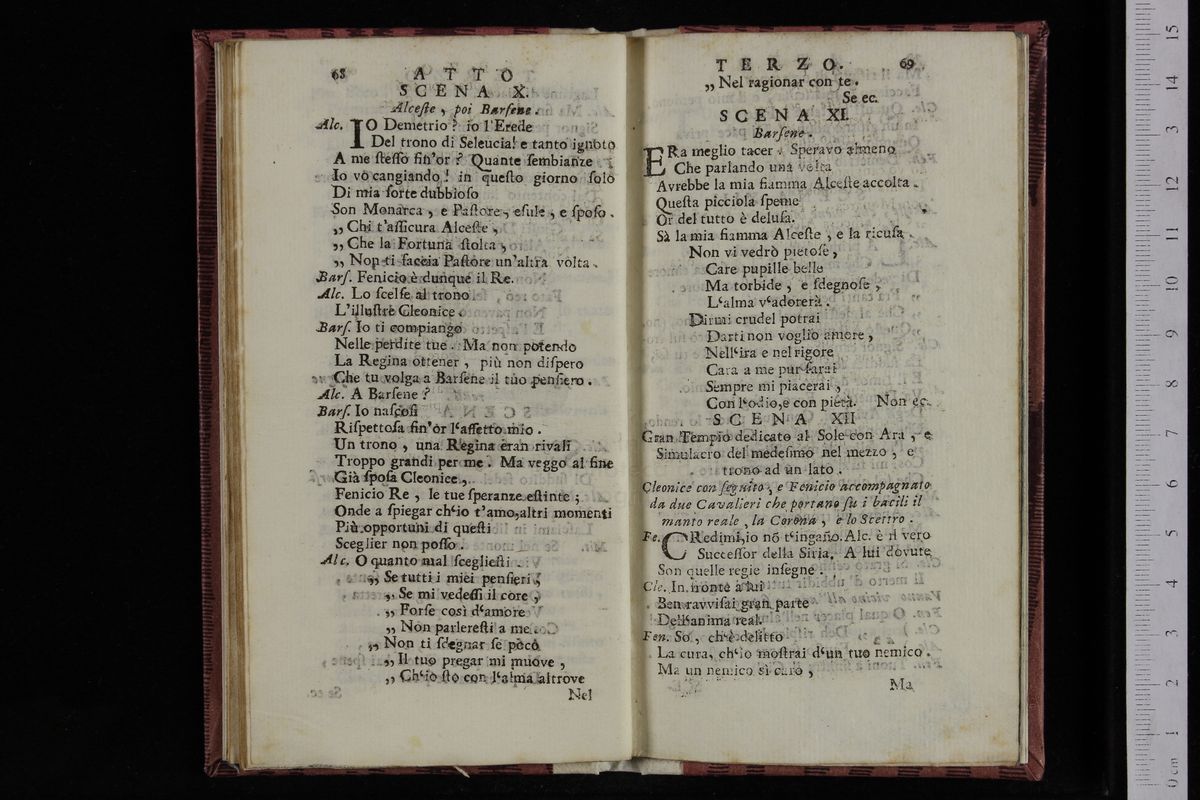 68 ATTO
SCENA X.
Alceſte, poi Barſene.
Alc. IO Demetrio? io l'Erede
Del trono di Seleucia! e tanto ignoto
A me ſteſſo ſin'or? Quante ſembianze
Io vò cangiando! in queſto giorno ſolo
Di mia ſorte dubbioſo
Son Monarca, e Paſtore, eſule, e ſpoſo.
„ Chi t'aſſicura Alceſte,
„ Che la Fortuna ſtolta,
„ Non ti faccia Paſtore un'altra volta.
Barſ. Fenicio è dunque il Re.
Alc. Lo ſcelſe al trono
L'illuſtre Cleonice.
Barſ. Io ti compiango
Nelle perdite tue. Ma non potendo
La Regina ottener, più non diſpero
Che tu volga a Barſene il tuo penſiero.
Alc. A Barſene?
Barſ. Io naſcoſi
Riſpettoſa ſin'or l'affetto mio.
Un trono, una Regina eran rivali
Troppo grandi per me. Ma veggo al fine
Già ſpoſa Cleonice,
Fenicio Re, le tue ſperanze eſtinte;
Onde a ſpiegar ch'io t'amo, altri momenti
Più opportuni di queſti
Sceglier non poſſo.
Alc. O quanto mal ſceglieſti.
„ Se tutti i miei penſieri,
„ Se mi vedeſſi il core,
„ Forſe così d'amore
„ Non parlereſti a me.
„ Non ti ſdegnar ſe pòcò
„ Il tuo pregar mi muove,
„ Ch'io ſto con l'alma altrove
Nel
TERZO. 69
„ Nel ragionar con te.
Se ec.
SCENA XI.
Barſene.
ERa meglio tacer. Speravo almeno
Che parlando una volta
Avrebbe la mia fiamma Alceſte accolta.
Queſta picciola ſpeme
Or del tutto è deluſa.
Sà la mia fiamma Alceſte, e la ricuſa.
Non vi vedrò pietoſe,
Care pupille belle
Ma torbide, e ſdegnoſe,
L'alma v'adorerà.
Dirmi crudel potrai
Darti non voglio amore,
Nell'ira e nel rigore
Cara a me pur ſarai
Sempre mi piacerai,
Con l'odio, e con pietà. Non ec.
SCENA XII
Gran Tempio dedicato al Sole con Ara, e
Simulacro del medeſimo nel mezzo, e
trono ad un lato.
Cleonice con ſeguito, e Fenicio accompagnato
da due Cavalieri che portano ſu i bacili il
manto reale, la Corona, e lo Scettro.
Fe. CRedimi, io nō t'ingaño. Alc. è il vero
Succeſſor della Siria. A lui dovute
Son quelle regie inſegne.
Cle. In fronte a lui
Ben ravviſai gran parte
Dell'anima real.
Fen. So, ch'è delitto
La cura, ch'io moſtrai d'un tuo nemico.
Ma un nemico sì caro,
Ma